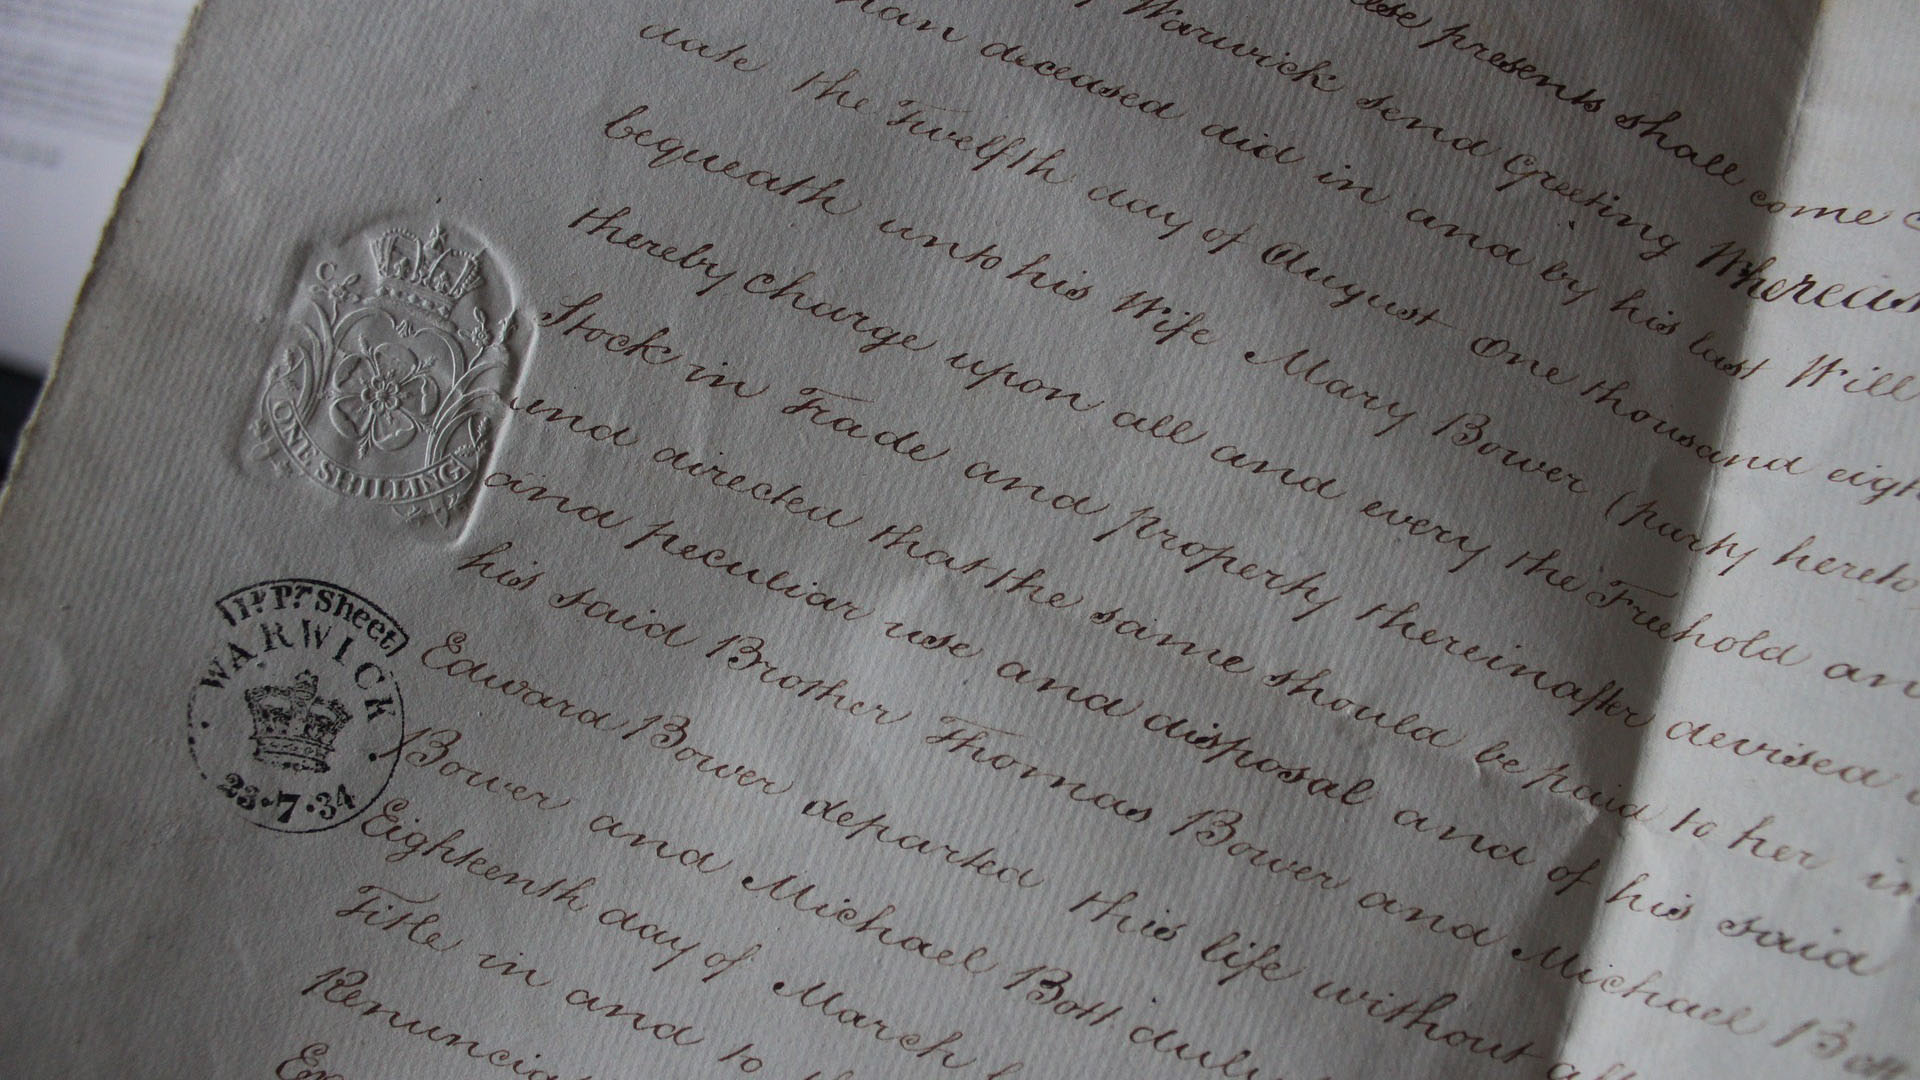 presents shall come
Warwick send Greeting Whereas
deceased did in and by his last Will
date the Twelfth day of August One thousand eigh
bequeath unto his Wife Mary Bower (party hereto
thereby charge upon all and every the Freehold an
Stock in Trade and property thereinafter devised
and directed that the same should be paid to her in
and peculiar use and disposal and of his said
his said Brother Thomas Bower and Michael Bott
Edward Bower departed this life without
Bower and Michael Bott duly
Eighteenth day of March
Title in and to
Renuncia
Ex
ONE SHILLING
Pr Sheet
WARWICK
23·7·34